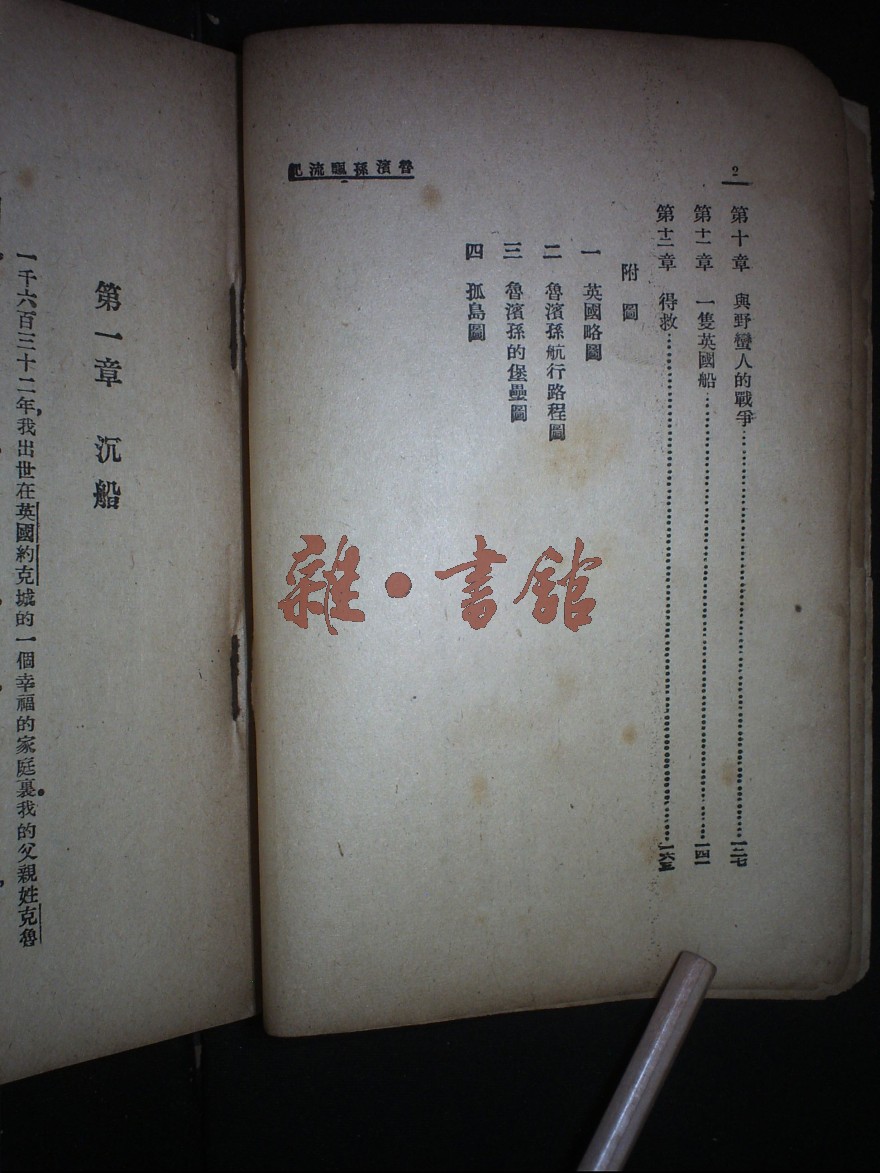 2
魯濱孫飄流記
第十章 與野蠻人的戰爭……一二七
第十一章 一隻英國船……一四一
第十二章 得救……一六三
附圖
一 英國略圖
二 魯濱孫航行路程圖
三 魯濱孫的堡壘圖
四 孤島圖
雜·書館
第一章 沉船
一千六百三十二年,我出世在英國約克城的一個幸福的家庭裏。我的父親姓克魯